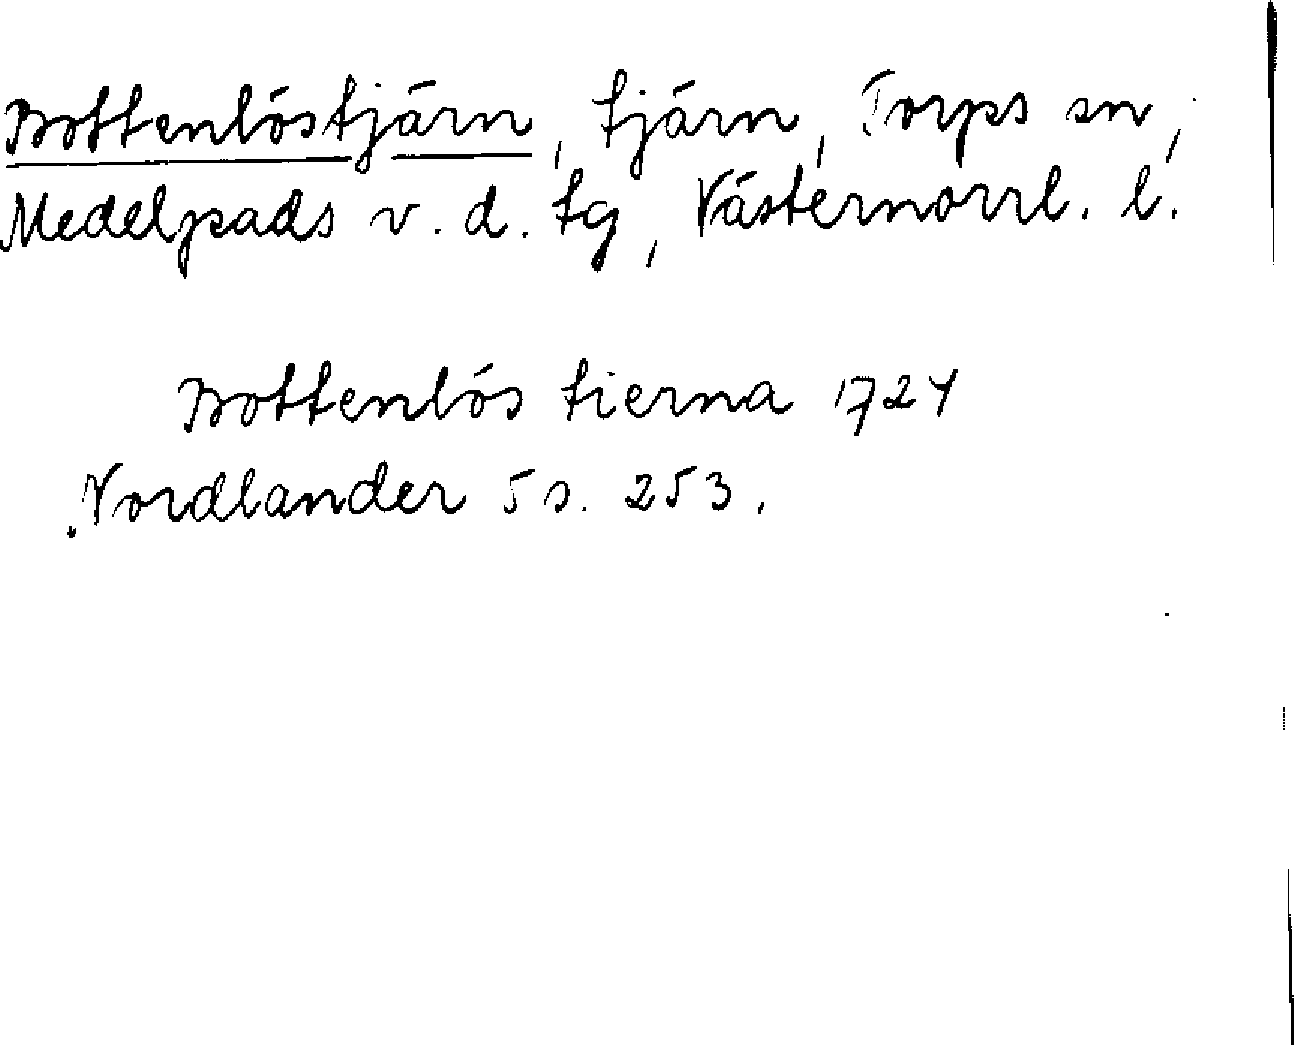 Bottenlöstjärn, tjärn, Torps sn,
Medelpads v. d. tg, Västernorrl. l.
Bottenlös tierna 1724
Nordlander 5 s. 253.